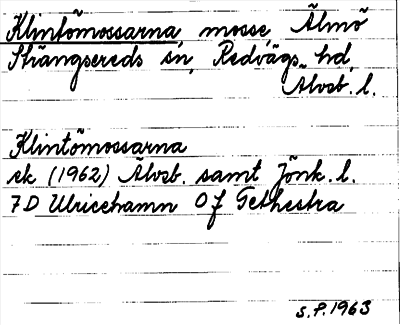 Klintömossarna, mosse, Älmö
Strängsereds sn, Redvägs hd,
Älvsb. l.
Klintömossarna
ek (1962) Älvsb. samt Jönk. l.
7D Ulricehamn Of Tethestra
S.P. 1963